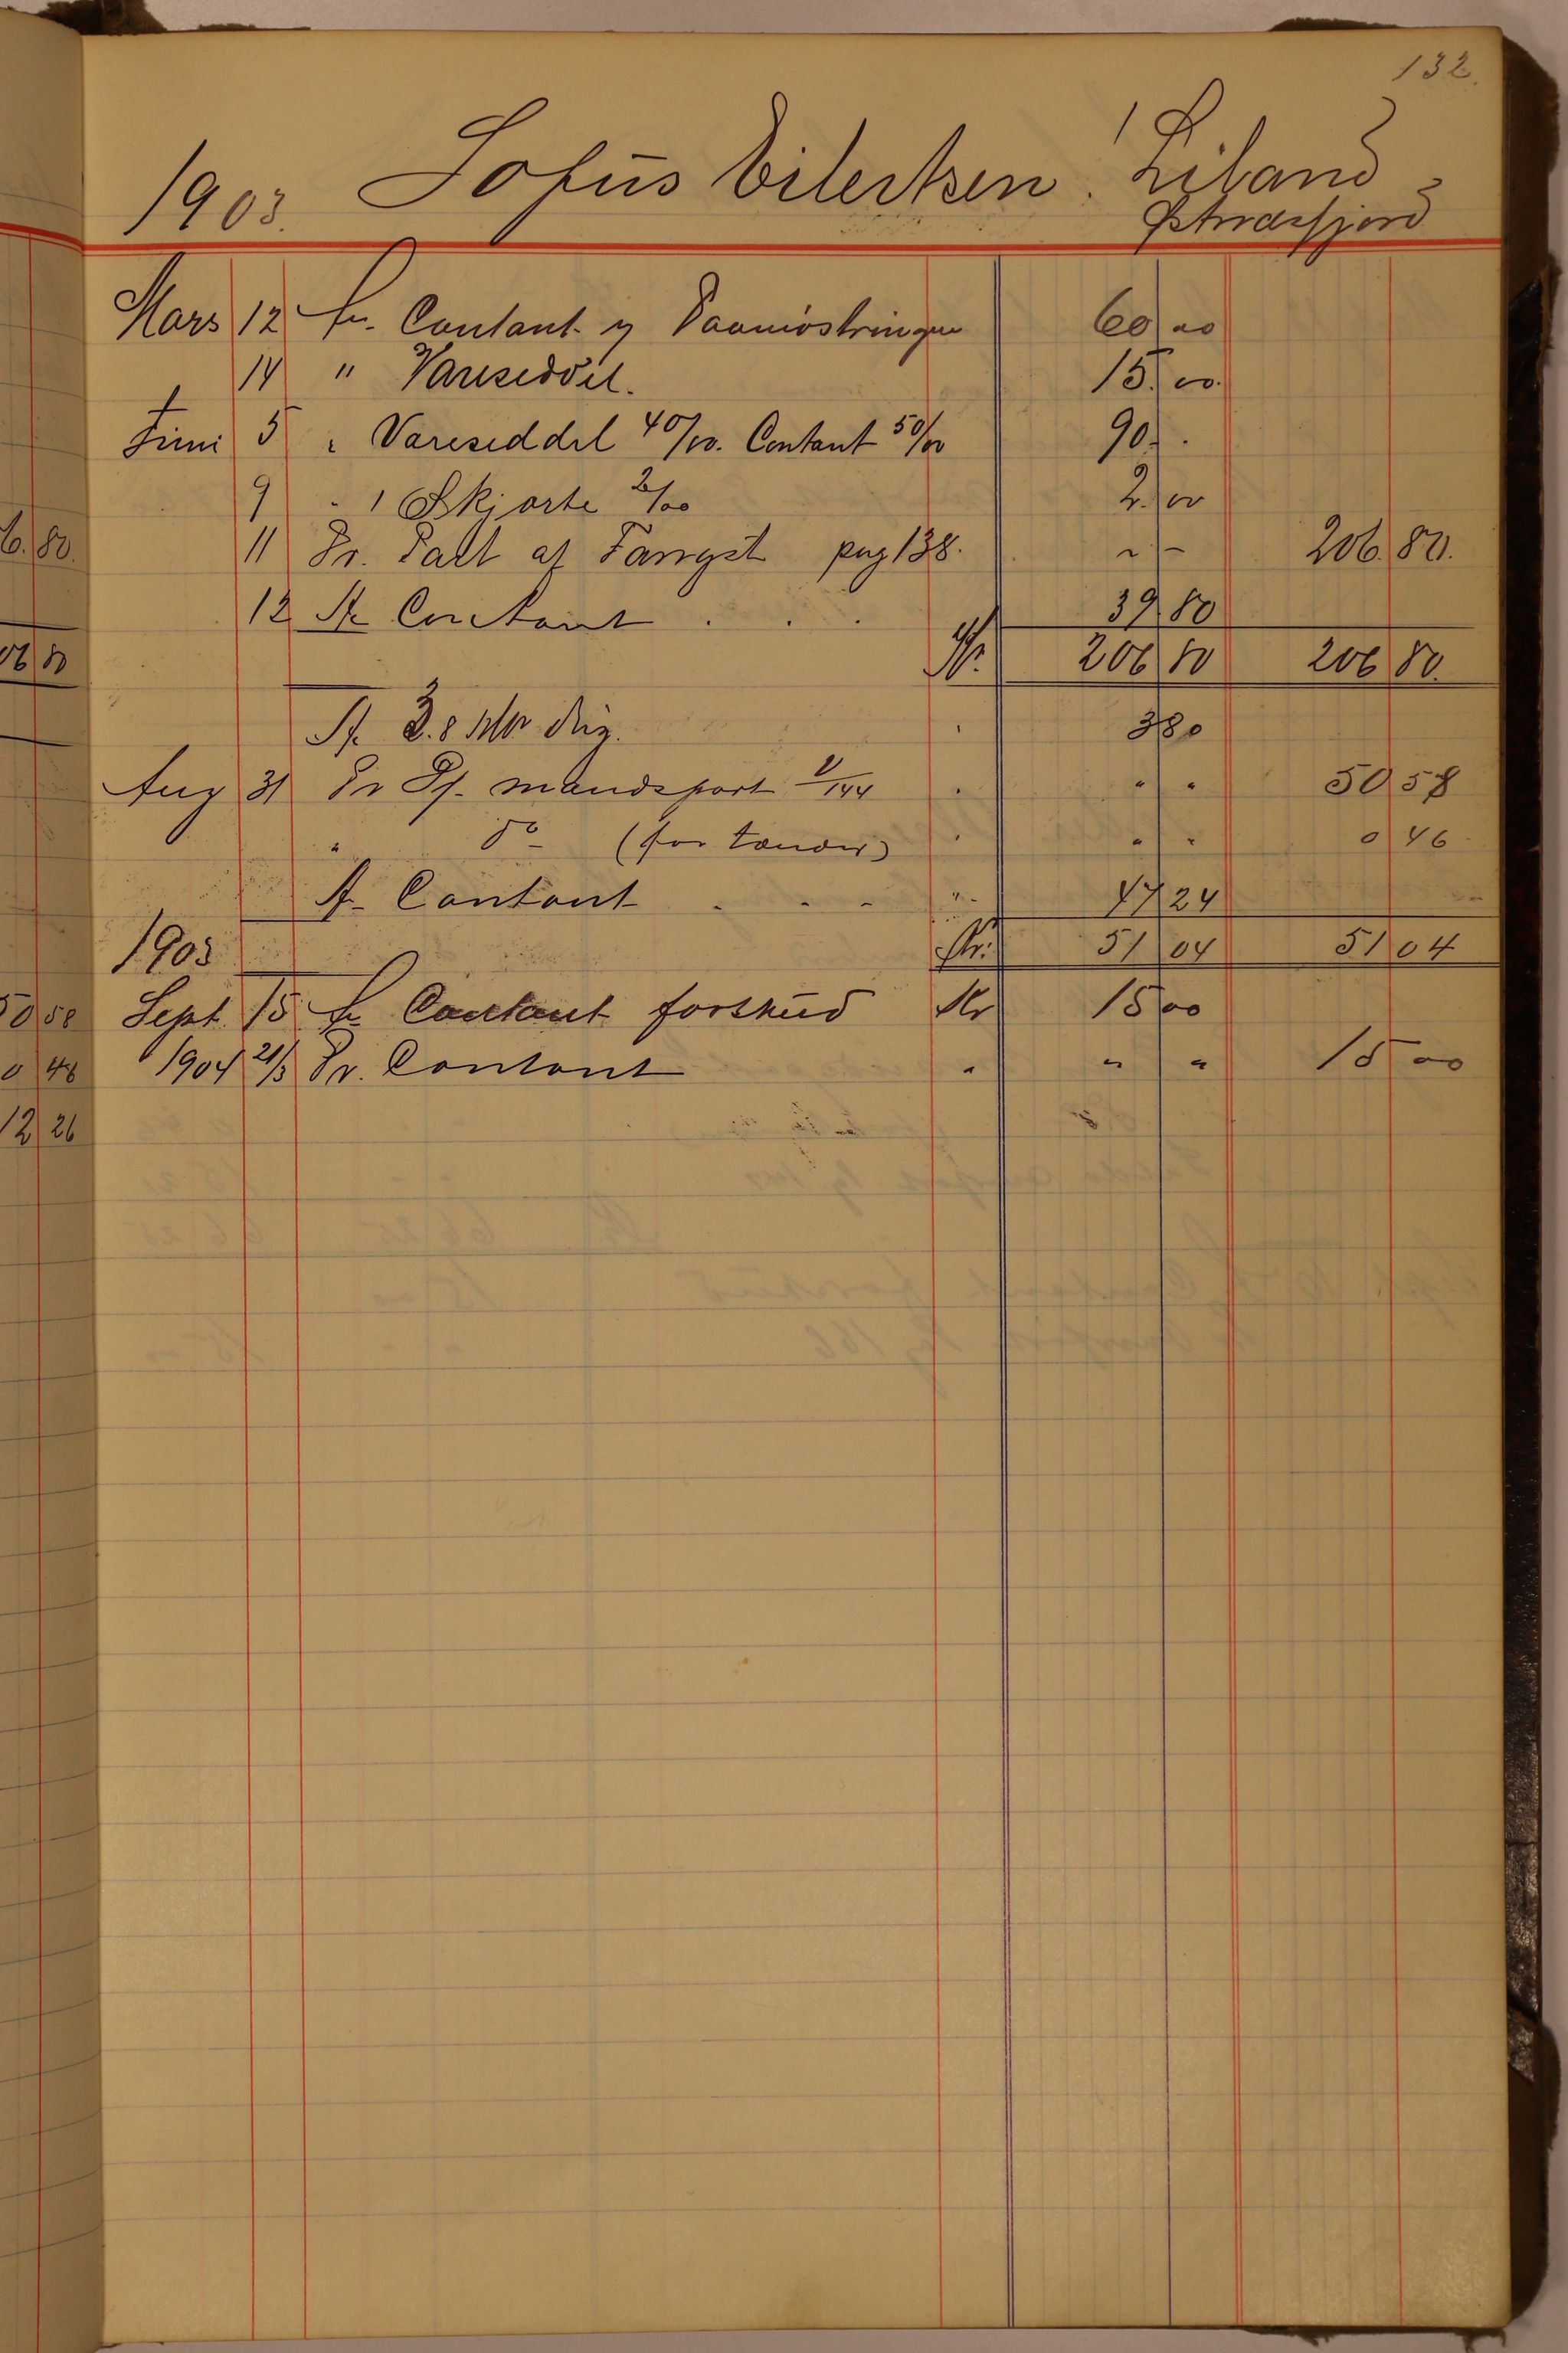 132.
1903. Sofus Eilertsen. Liland
Østnæsfjord
Mars 12 An Contant v Paamønstringen 60 00
14 " Vareseddel. 15. 00.
Juni 5 " Vareseddel 40/00. Contant 50/00 90. -.
9 " 1 Skjorte 2/00 2. 00
6. 80. 11 Pr. Part af Fangst pag 138. " - 206. 80.
12 An Contant . . . 39 80
06 80 Kr. 206 80 206 80.
An 3 80
Aug 31 Pr Pf. mandspart 1/144 " " " 50 58
" do (for tænder) " " " 0 46
An Contant - - - " 47 24
1903 Kr. 51 04 51 04
50 58 Sept. 15 An Contant forskud Kr 15 00
0 46 1904 21/3 Pr. Contant " " " 15 00
12 26